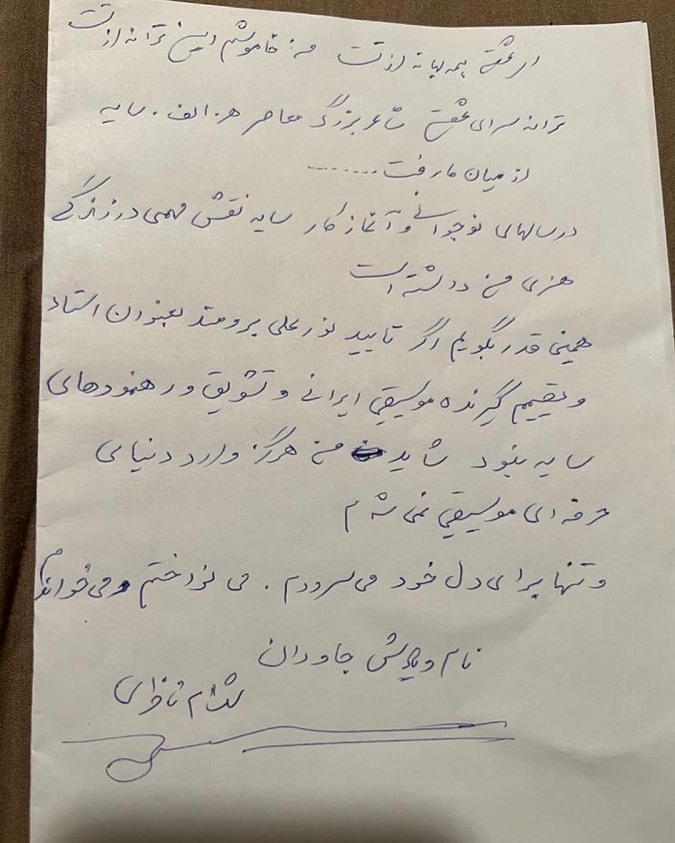 ای عشق همه بهانه از تست من خاموشم این ترانه از تست
ترانه سرای عشق شاعر بزرگ معاصر ه. الف. سایه
از میان ما رفت.......
در سالهای نوجوانی و آغاز کار سایه نقش مهمی در زندگی
هنری من داشته است
همین قدر بگویم اگر تایید نورعلی برومند بعنوان استاد
و تصمیم گیرنده موسیقی ایرانی و تشویق و رهنمودهای
سایه نبود شاید من هرگز وارد دنیای
حرفه ای موسیقی نمی شدم
و تنها برای دل خود می سرودم. می نواختم و می خواندم
نام و یادش جاودان
شهرام ناظری